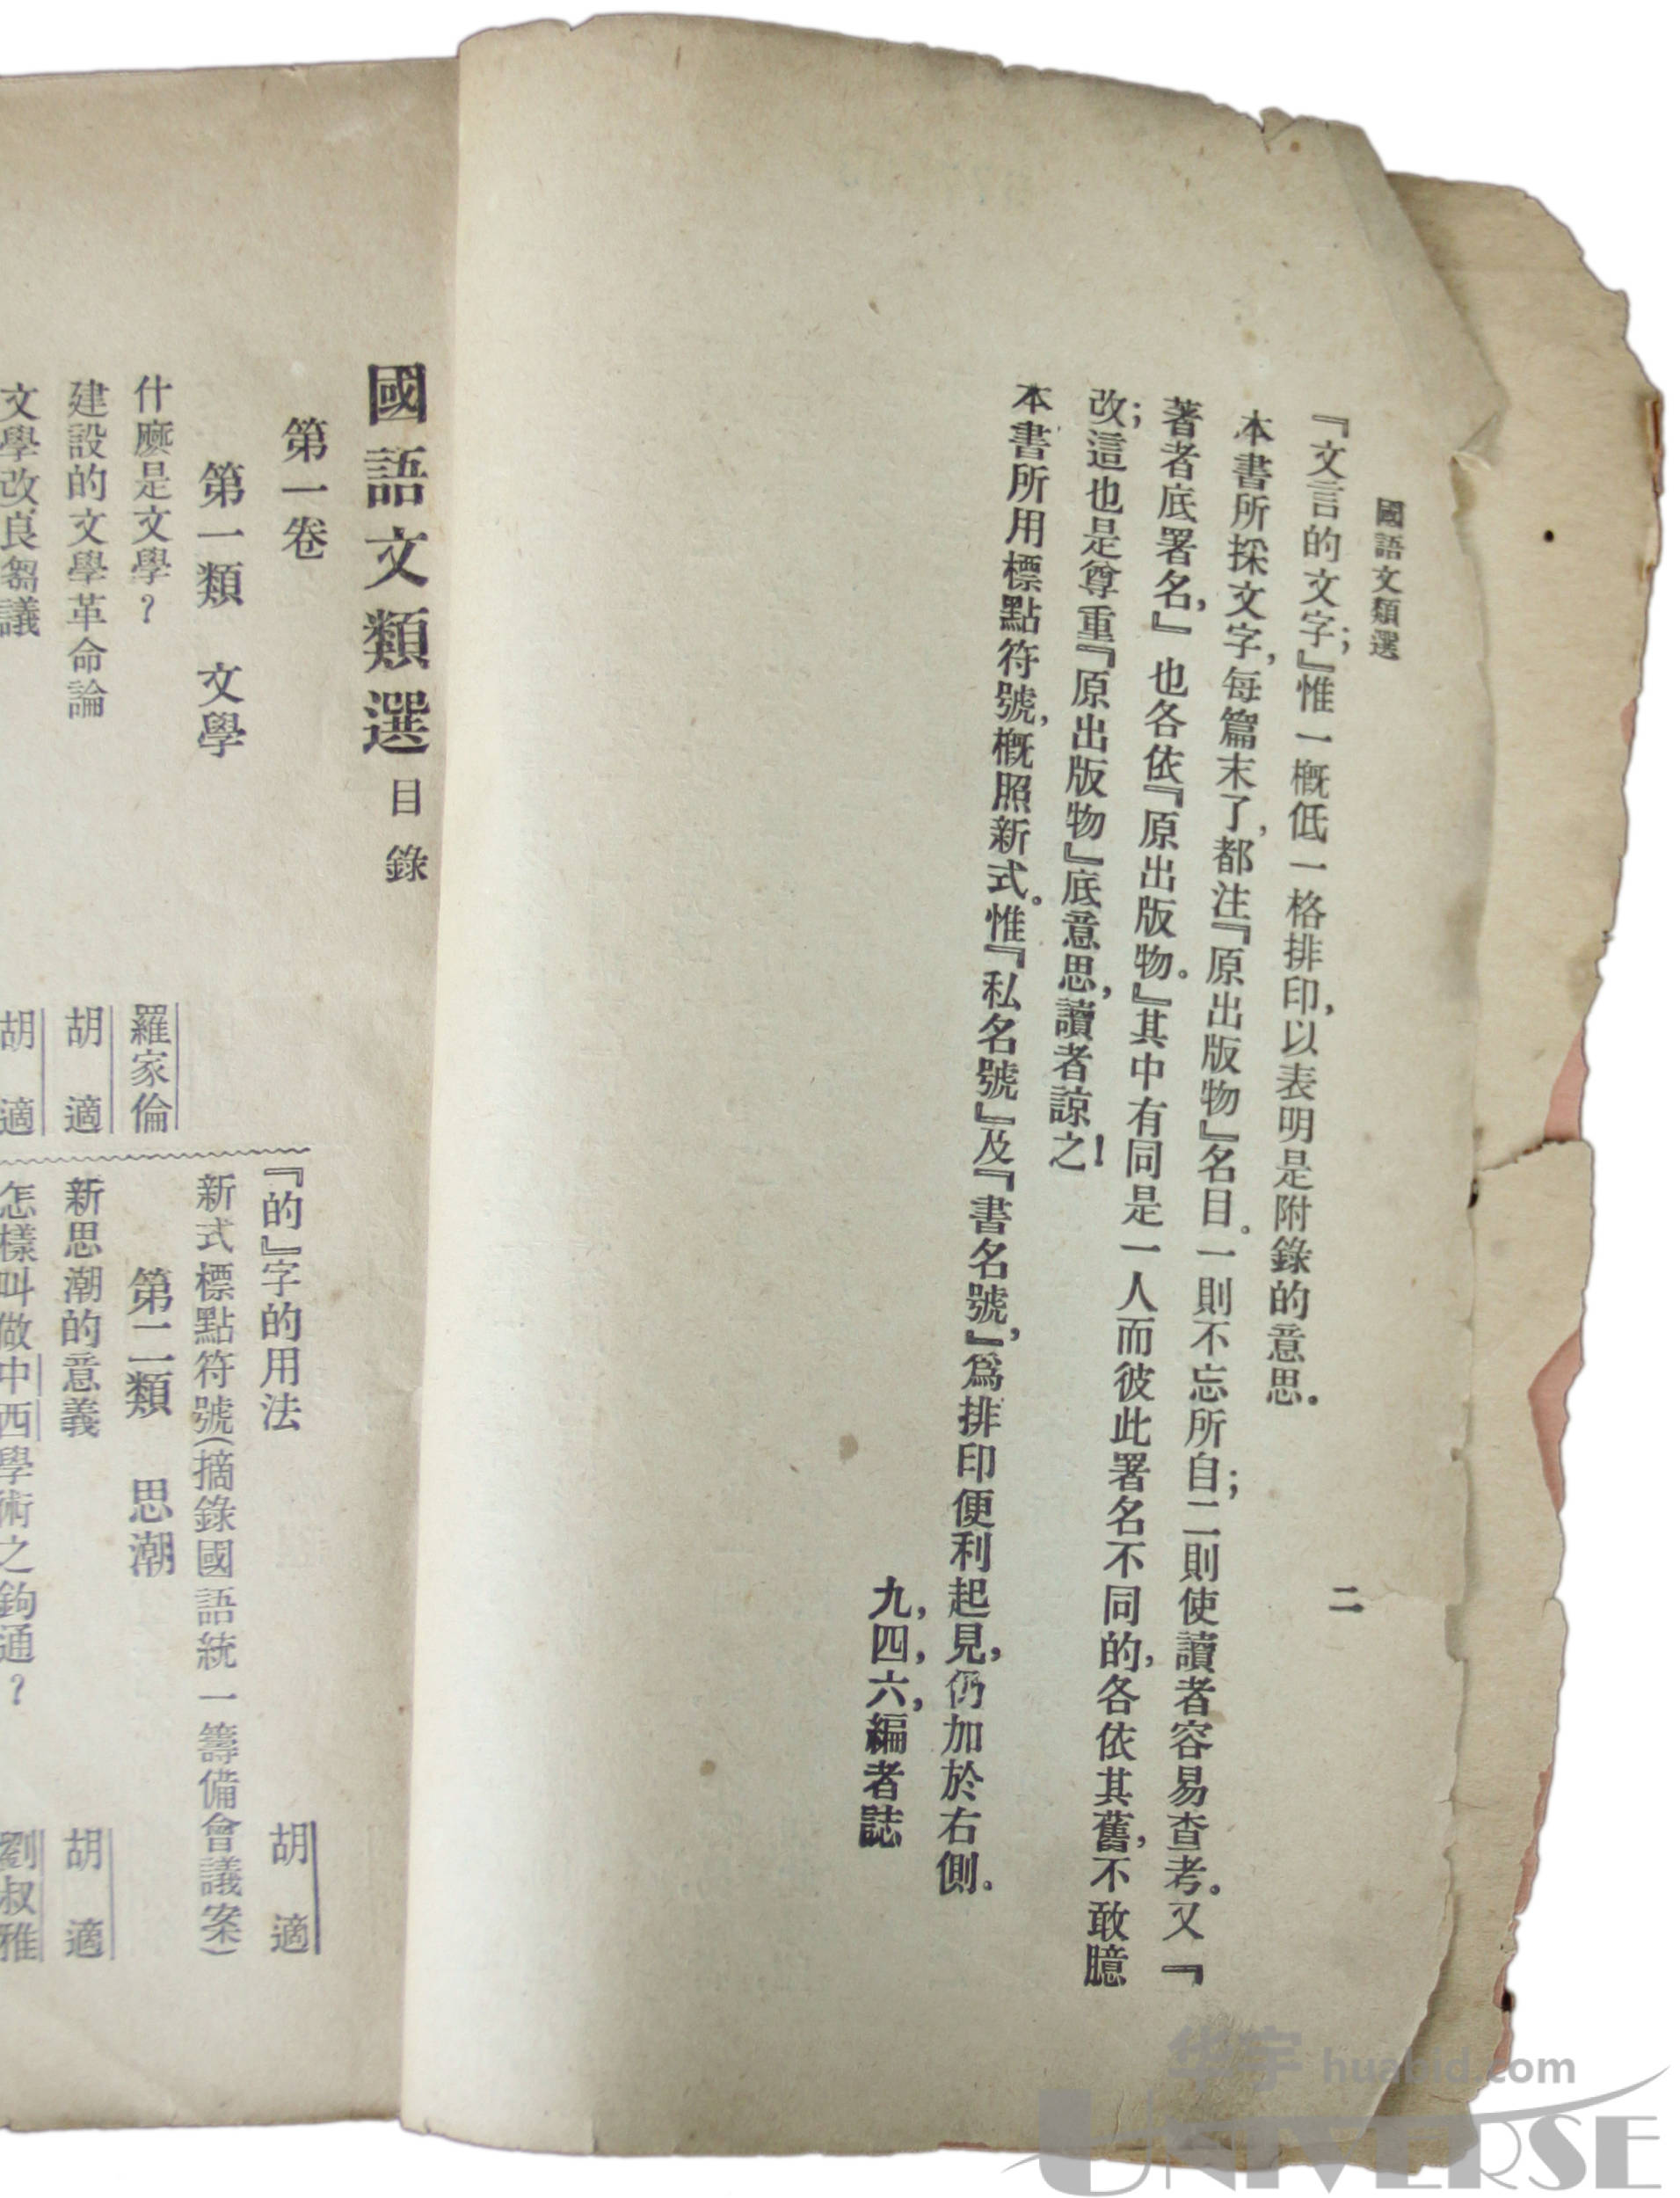 國語文類選
二
『文言的文字；』惟一概低一格排印，以表明是附錄的意思。
本書所採文字，每篇末了，都注『原出版物』名目。一則不忘所自；二則使讀者容易查考。又『
著者底署名，』也各依『原出版物。』其中有同是一人而彼此署名不同的，各依其舊，不敢臆
改；這也是尊重『原出版物』底意思，讀者諒之！
本書所用標點符號，概照新式。惟『私名號』及『書名號，』爲排印便利起見，仍加於右側。
九，四，六，編者誌
國語文類選 目錄
第一卷
第一類 文學
什麽是文學？ 羅家倫
建設的文學革命論 胡適
文學改良芻議 胡適
『的』字的用法 胡適
新式標點符號（摘錄國語統一籌備會議案）
第二類 思潮
新思潮的意義 胡適
怎樣叫做中西學術之鉤通？ 劉叔雅
华宇 huabid.com
UNIVERSE